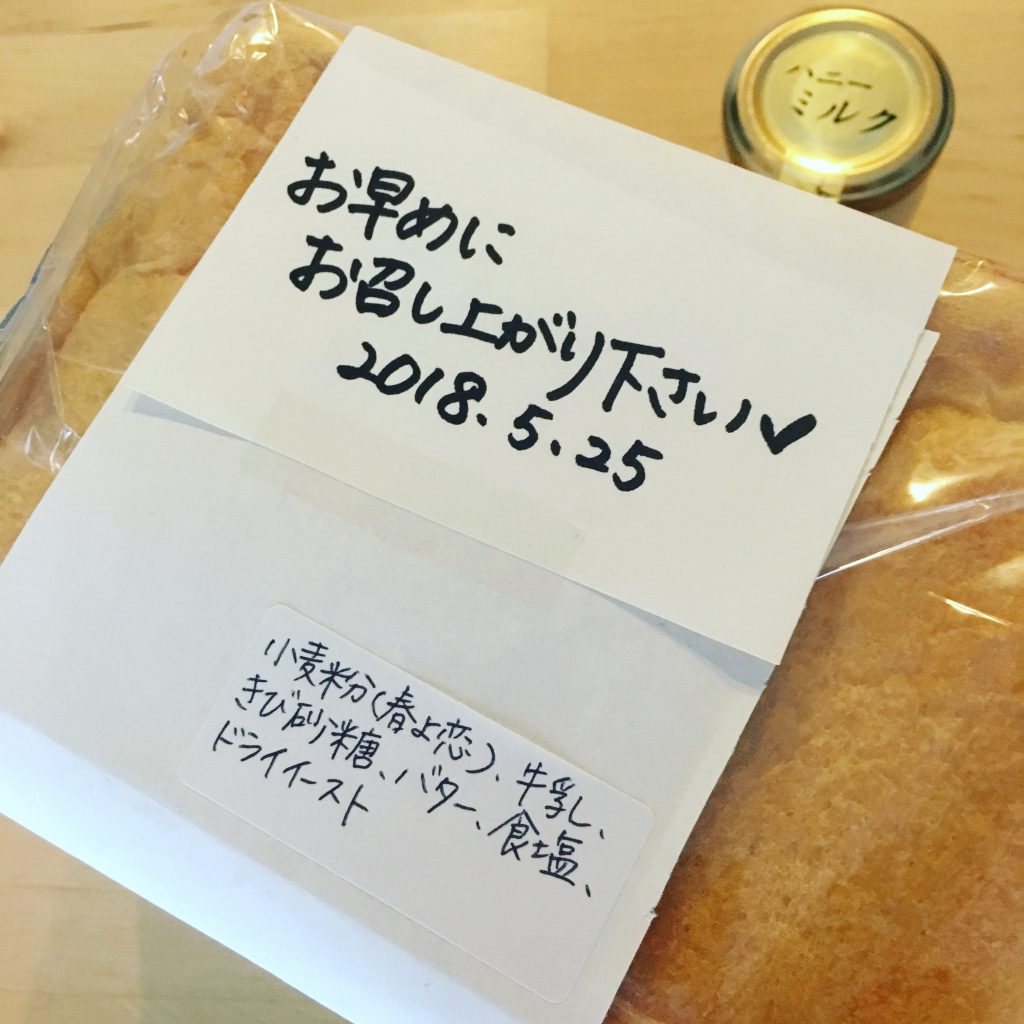 ハニー
ミルク
お早めに
お召し上がり下さい♥
2018.5.25
小麦粉(春よ恋)、牛乳、
きび砂糖、バター、食塩、
ドライイースト